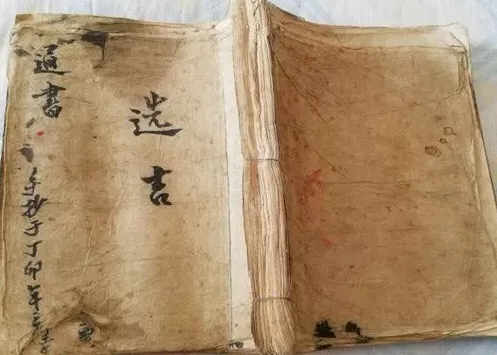 通書
选吉
手抄于丁卯年